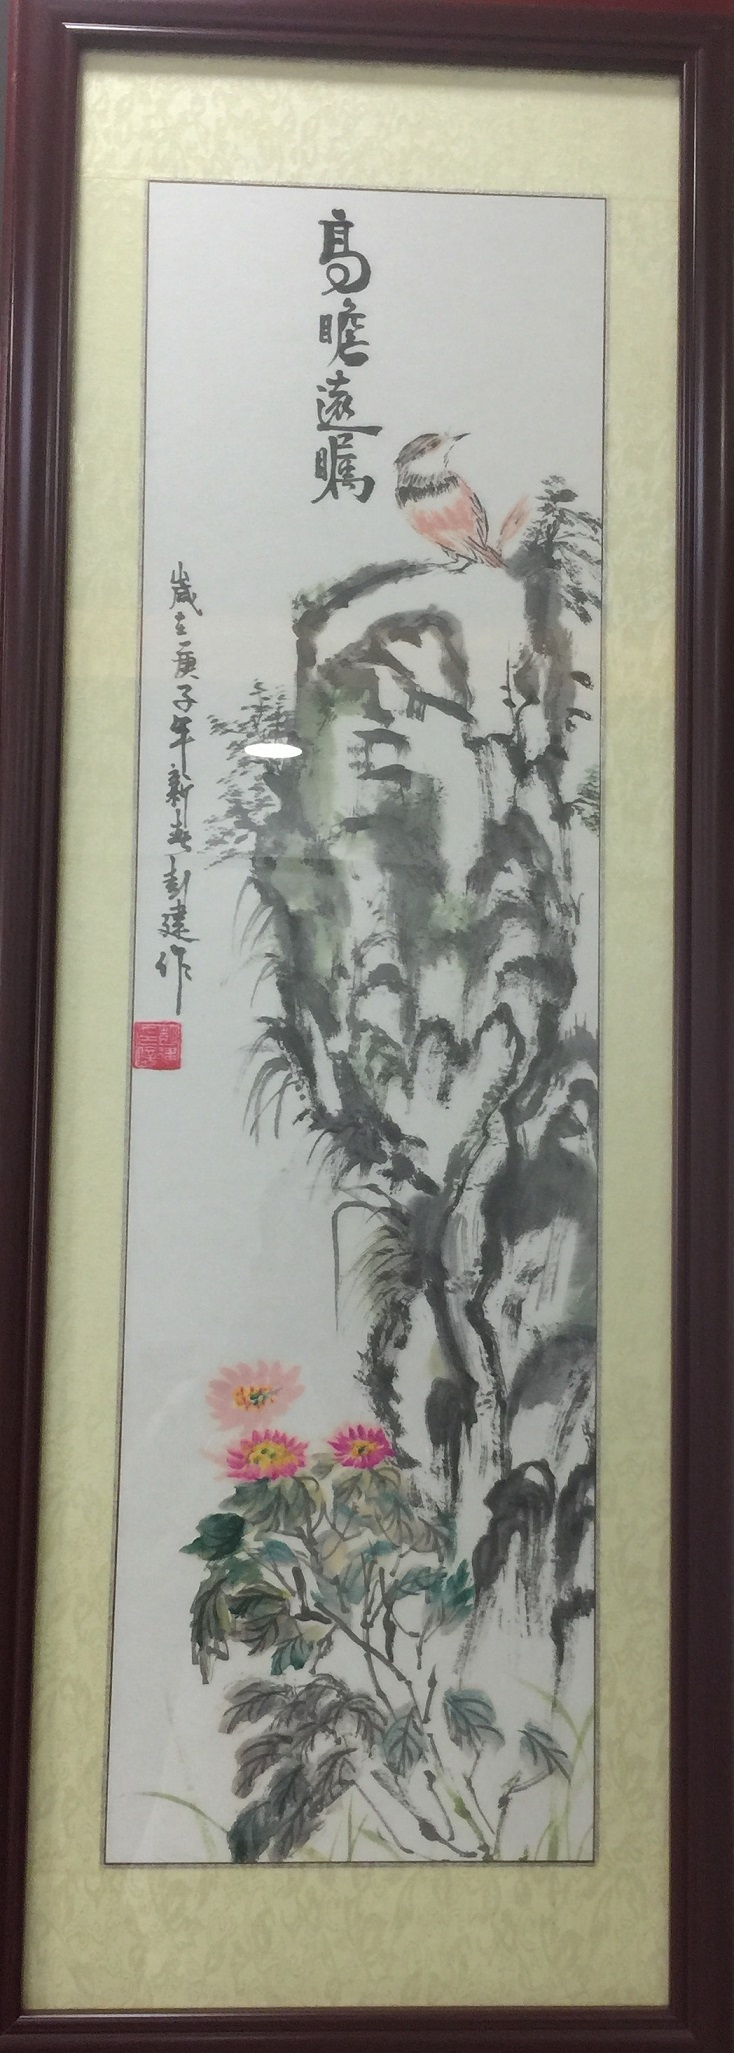 高瞻遠瞩
歲在庚子年新春彭建作